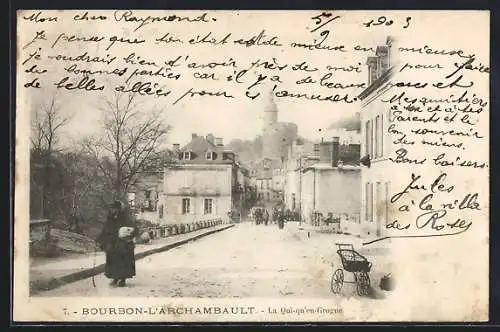 Mon cher Raymond. 5/7 1903
Je pense que ton état est de mieux en mieux
je voudrais bien t'avoir près de moi pour faire
de bonnes parties car il y a de beaux parcs et
de belles allées pour s'amuser.
Mes amitiés
à ton et à tes
Parents et le
bon souvenir
des miens.
Bons baisers.
Jules
à la villa
des Roses
7. - BOURBON-L'ARCHAMBAULT. - La Qui-qu'en-Grogne